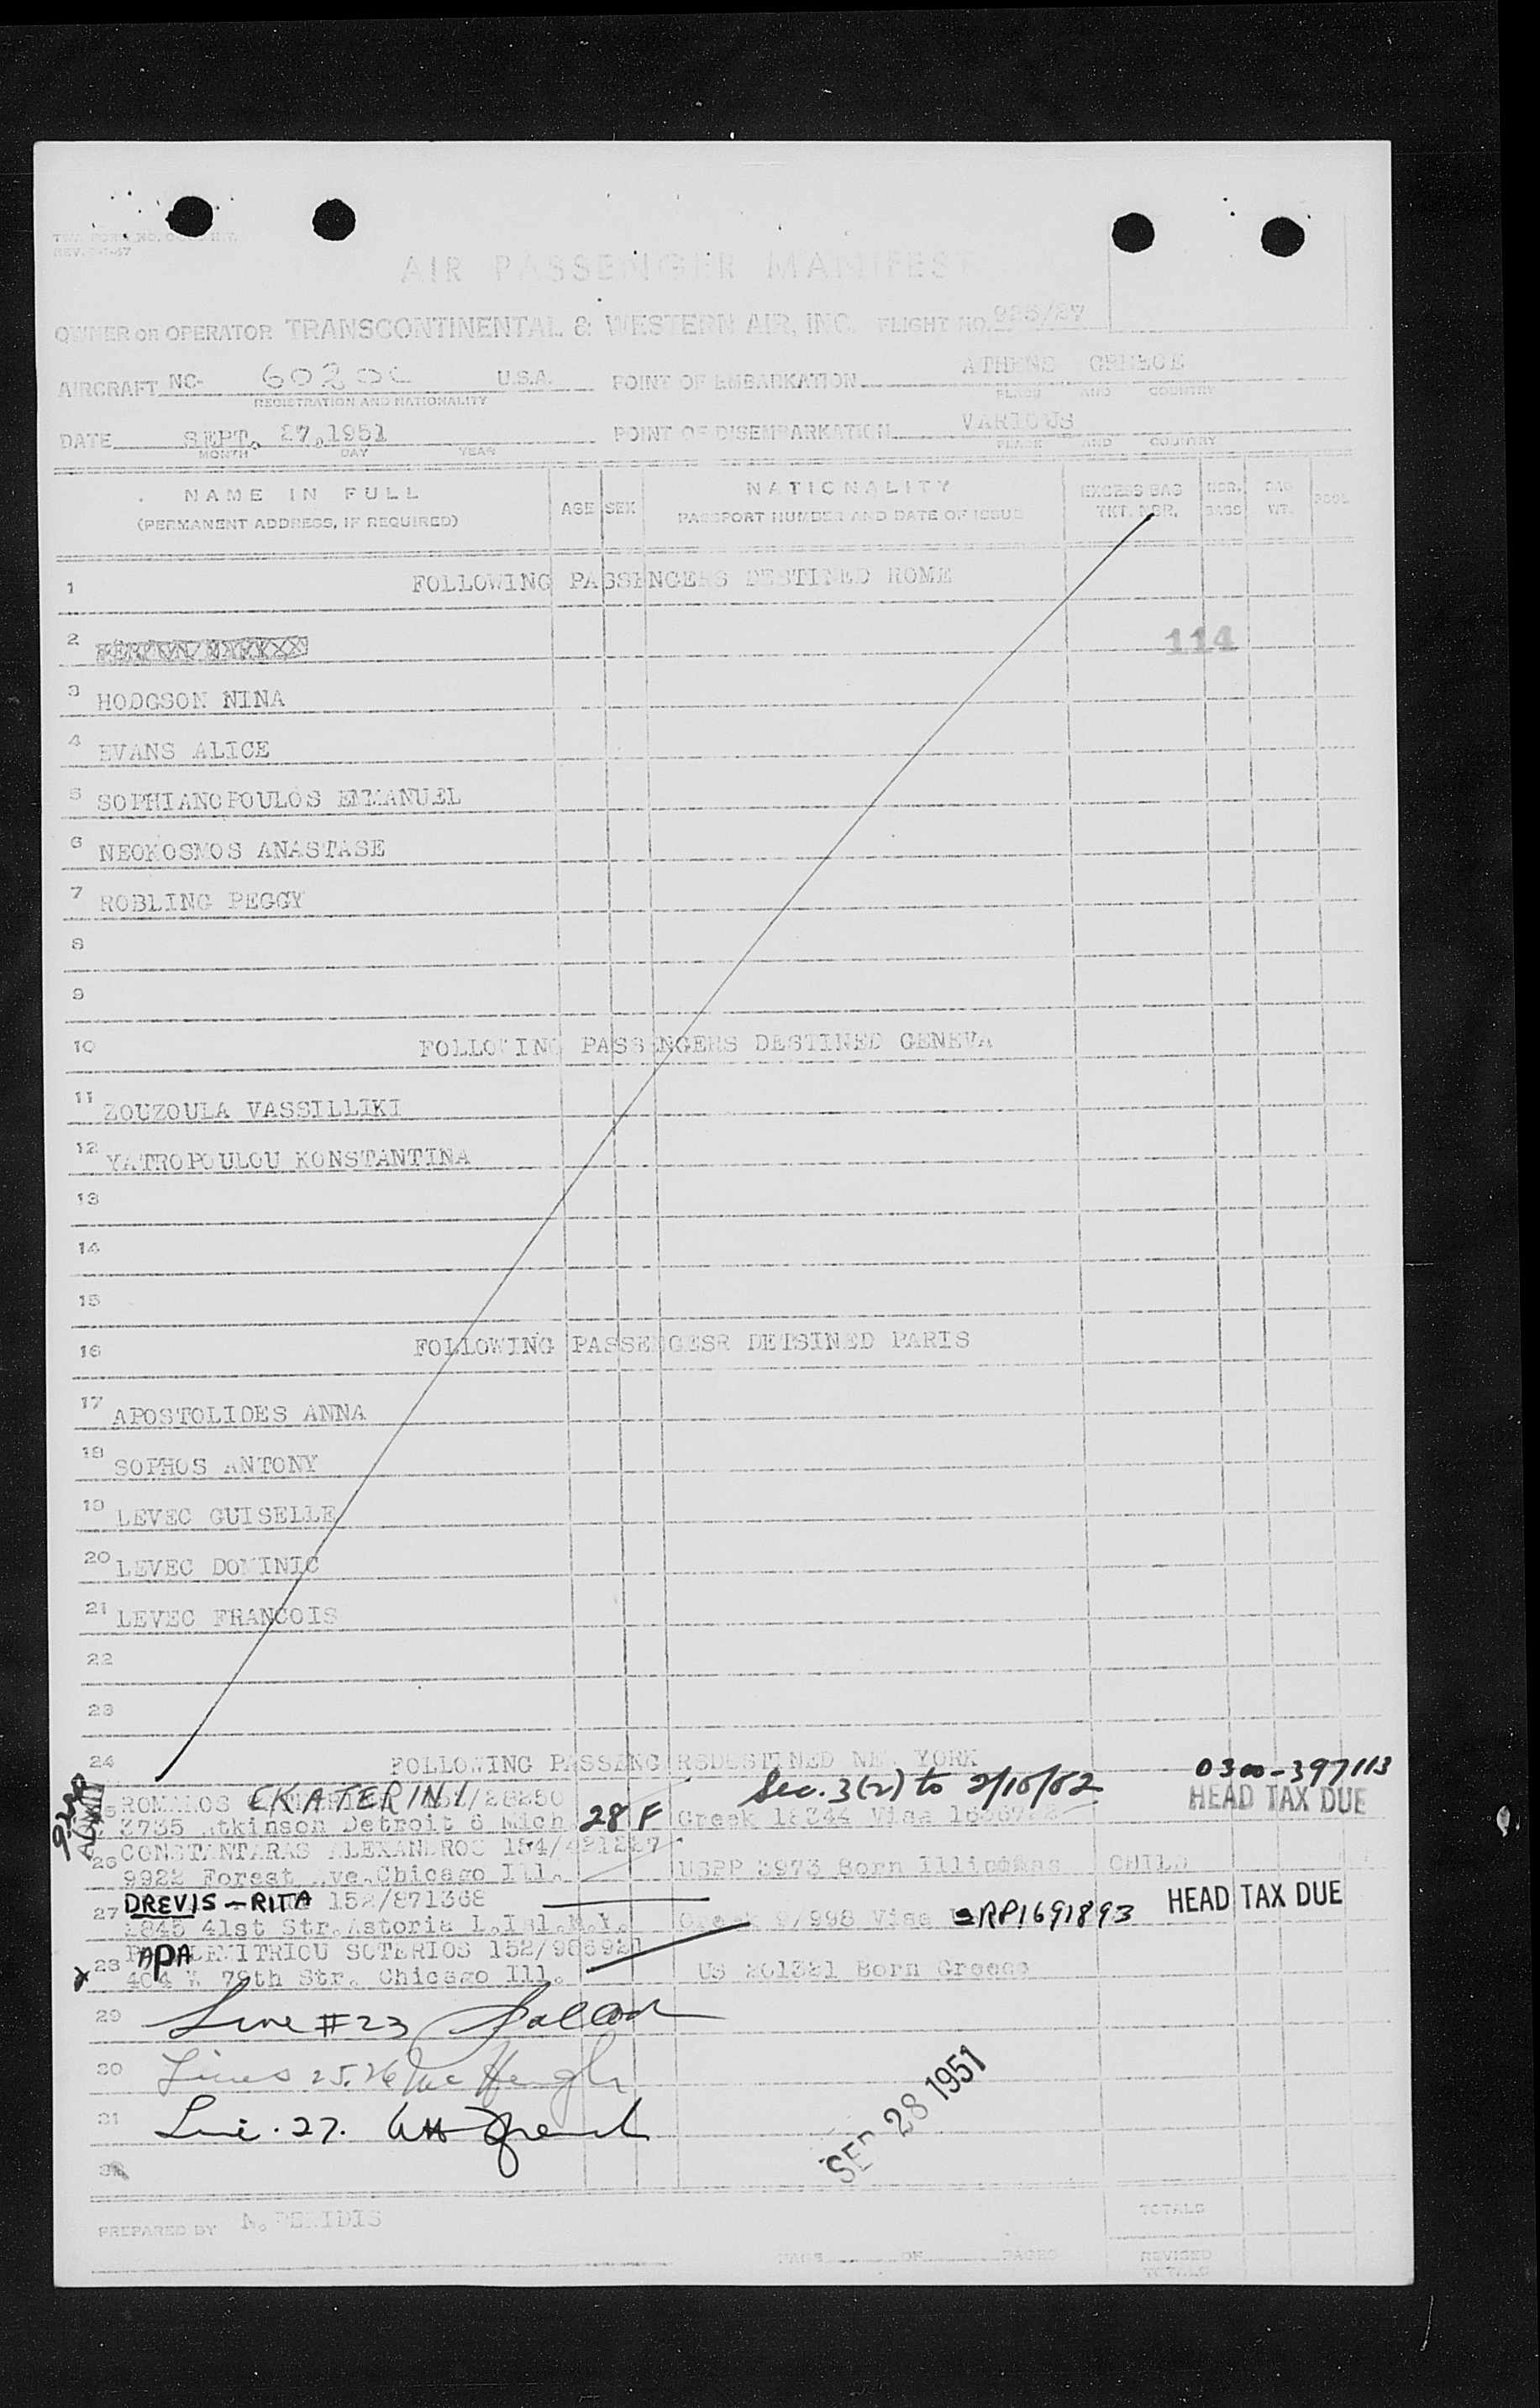 REV. 7-1-47
AIR PASSENGER MANIFEST
OWNER OR OPERATOR TRANSCONTINENTAL & WESTERN AIR, INC. FLIGHT NO. 925/27
AIRCRAFT NC- 6020C U.S.A. POINT OF EMBARKATION ATHENS GREECE
REGISTRATION AND NATIONALITY PLACE AND COUNTRY
DATE SEPT. 27,1951 POINT OF DISEMBARKATION VARIOUS
MONTH DAY YEAR PLACE AND COUNTRY
NAME IN FULL AGE SEX NATIONALITY EXCESS BAG NBR. BAG
(PERMANENT ADDRESS, IF REQUIRED) PASSPORT NUMBER AND DATE OF ISSUE TKT. NBR. BAGS WT.
1 FOLLOWING PASSENGERS DESTINED ROME
2 114
3 HODGSON NINA
4 EVANS ALICE
5 SOPHIANOPOULOS EMMANUEL
6 NEOKOSMOS ANASTASE
7 ROBLING PEGGY
8
9
10 FOLLOWING PASSENGERS DESTINED GENEVA
11 ZOUZOULA VASSILLIKI
12 YATROPOULOU KONSTANTINA
13
14
15
16 FOLLOWING PASSENGESR DETSINED PARIS
17 APOSTOLIDES ANNA
18 SOPHOS ANTONY
19 LEVEC GUISELLE
20 LEVEC DOMINIC
21 LEVEC FRANCOIS
22
23
24 FOLLOWING PASSENGERSDESTINED NEW YORK 0300-397113
EKATERINI Sec. 3(2) to 2/10/52 HEAD TAX DUE
3735 Atkinson Detroit 6 Mich 28 F Greek 18344 Visa
26 CONSTANTARAS ALEXANDROS
9922 Forest Ave.Chicago Ill. USPP 3973 Born CHILD
27 DREVIS-RITA 152/871368 HEAD TAX DUE
2845 41st Str.Astoria L.Isl.N.Y. Greek 9/998 Visa RP1691893
28 PAPADEMITRIOU SOTERIOS
404 W 79th Str. Chicago Ill. US 201321 Born Greece
29 Line #23
30 Lines 25.26 McHugh
31 Line. 27.
SEP 28 1951
PREPARED BY TOTALS
PAGE OF PAGES REVISED
TOTALS